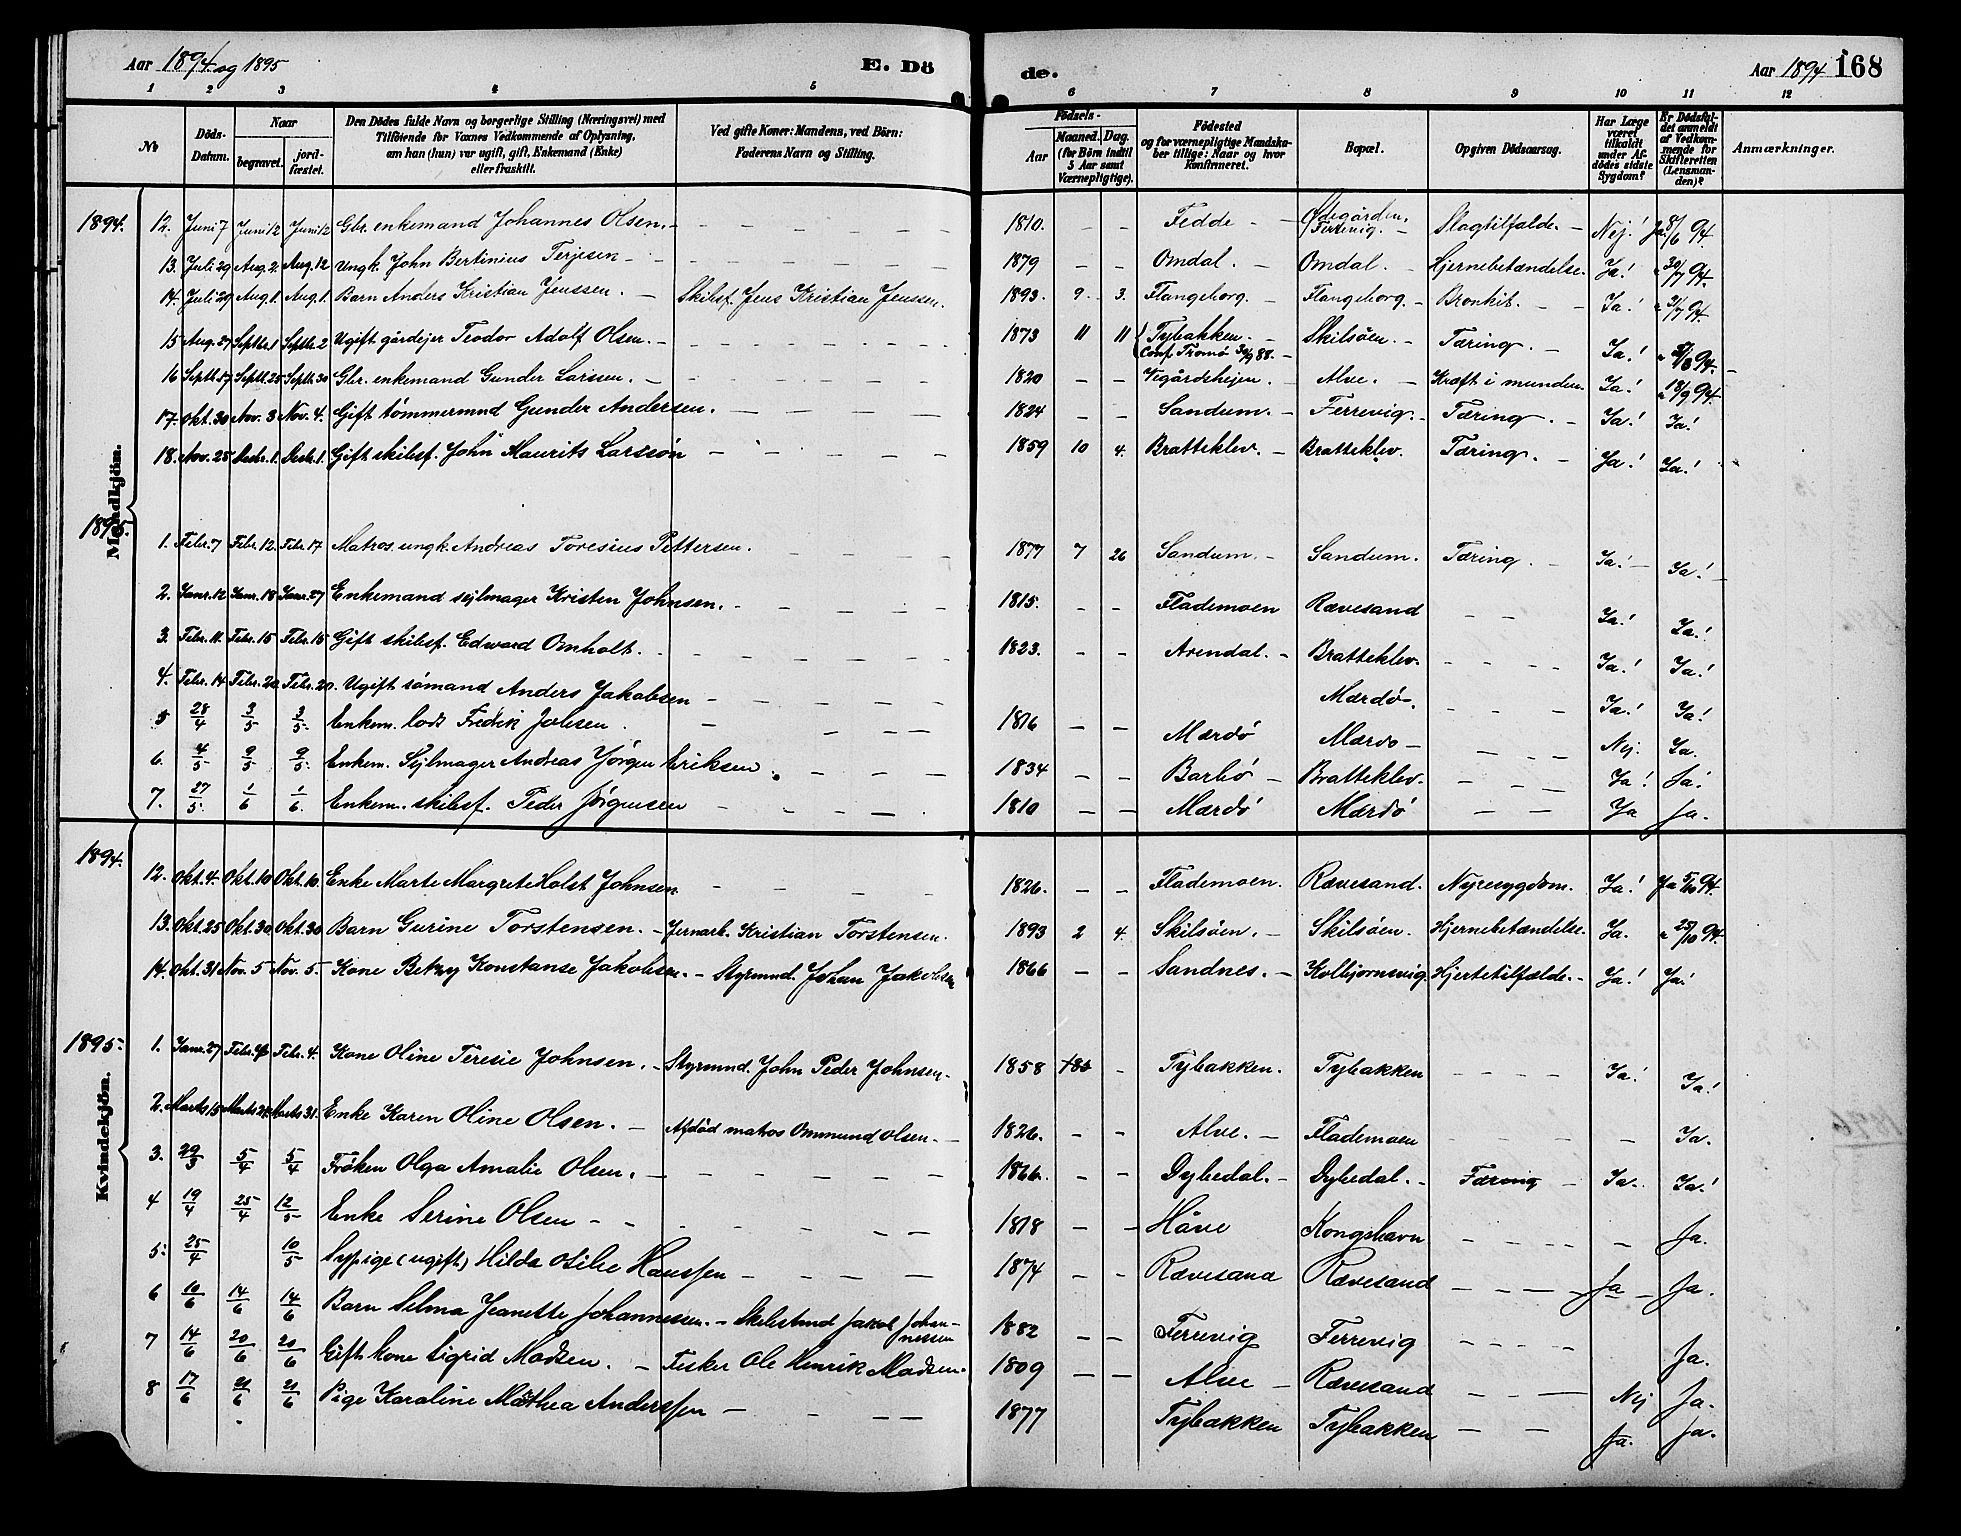 Aar 1894 og 1895 E. Dö de. Aar 1894 168
1 2 3 4 5 6 7 8 9 10 11 12
No Döds-Datum. Naar begravet. jordfæstet. Den Dödes fulde Navn og borgerlige Stilling (Næringsvei) med Tilföiende for Voxnes Vedkommende af Oplysning, om han (hun) var ugift, gift, Enkemand (Enke) eller fraskilt. Ved gifte Koner: Mandens, ved Börn: Faderens Navn og Stilling. Födsels- Aar Maaned. Dag. (for Börn indtil 5 Aar samt Værnepligtige). Födested og for værnepligtige Mandskaber tillige: Naar og hvor Konfirmeret. Bopæl. Opgiven Dödsaarsag. Har Læge været tilkaldt under Afdödes sidste Sygdom? Er Dödsfaldet anmeldt af Vedkommende for Skifteretten (Lensmanden)? Anmærkninger.
Mandkjön.
1894.
12. Juni 7 Juni 12 Juni 12 Gbr. enkemand Johannes Olsen. - - - - - 1810. - - Fedde - Ødegården. / Ferrevig. - Slagtilfælde. - Nej! Ja 8/6 94
13. Juli 29 Aug. 2. Aug. 12 Ungk. John Bertinius Terjesen - - - - - 1879 - - Omdal. - Omdal. - Hjernebetændelse. Ja! " 30/7 94.
14. Juli 29 Aug. 1. Aug. 1. Barn Anders Kristian Jenssen. - Skibsf. Jens Kristian Jenssen. 1893. 9. 3. Flangeborg. - Flangeborg. - Bronkit. - Ja! " 31/7 94.
15 Aug. 27 Septbr. 1 Septbr. 2 Ugift gårdejer Teodor Adolf Olsen. - - - - - 1873 11 11 Tybakken. - Conf. Tromø 30/9 88. - Skilsöen. - Tæring. - Ja! 94.
16 Septb. 17 Septb. 25 Septb. 30 Gbr. enkemand Gunder Larssen. - - - - - 1820 - - Vegårdshejen. - Alve. - Kræft i munden. Ja! " 18/9 94.
17. Okt. 30 Nov. 3 Nov. 4. Gift tömmermnd Gunder Andersen. - - - - 1824 - - Sandum. - Ferrevig. - Tæring. - Ja! Ja!
18. Nov. 25 Desbr. 1. Desbr. 1. Gift skibsf. John Maurits Larssön - - - - 1859 10 4. Bratteklev. - Bratteklev. Tæring. - Ja! Ja!
1895.
1. Febr. 7 Febr. 12. Febr. 17 Matros. ungk. Andreas Toresius Pettersen. - - - - 1877 7 26 Sandum. - Sandum. Tæring. - Ja! - Ja! -
2. Janr. 12 Janr. 18 Janr. 27 Enkemand sejlmager Kristen Johnsen. - - - - - 1815. - - Flademoen Rævesand - - Ja! Ja!
3. Febr. 11. Febr. 15 Febr. 15 Gift skibsf. Edward Omholt. - - - - - 1823. - - Arendal. - Bratteklev. - - - - Ja! Ja!
4. Febr. 14 Febr. 20 Febr. 20. Ugift sömand Anders Jakobsen - - - - - Mærdö -. - - - Ja! Ja!
5 28/4 3/5 3/5. Enkem. lods Fredrik Jobsen. - - - - 1816 - - Mærdö Mærdo - - - - Nej. Ja.
6. 4/5 9/5 9/5. Enkem. Sejlmager Andreas Jörgen Eriksen. - - - - 1834 - - Barbö - Bratteklev. - - - Ja! Ja!
7. 27/5. 1/6 1/6. Enkem. skibsf. Peder Jörgensen - - - - 1810 - - Mærdö Mærdö - - Ja Ja.
Kvindekjön.
1894.
12. Okt. 4. Okt. 10 Okt. 10. Enke Marte Margrete Holst Johnsen - - - - 1826. - - Flademoen. Rævesand. Nyresygdom. Ja! Ja 5/10 94.
13. Okt. 25 Okt. 30 Okt. 30 Barn Gurine Torstensen. - Jernarb. Kristian Torstensen. 1893 2 4. Skilsöen. - Skilsöen. Hjernebetændelse. Ja. " 25/10 94.
14. Okt. 31 Nov. 5 Nov. 5. Kone Betzy Konstanse Jakobsen. - Styrmnd. Johan Jakobsen 1866 - - Sandnes. - Kolbjörnsvig. Hjertetilfælde. - Ja! Ja!
1895.
1. Janr. 27 Febr. Febr. 4. Kone Oline Teresie Johnsen. - Styrmnd. John Peder Johnsen - 1858 - Tybakken. Tybakken - - - - Ja! Ja!
2. Marts 15 Marts Marts 31. Enke Karen Oline Olsen. - Afdöd matros Ommund Olsen. - 1826. - - Alve. - Flademoen - - - - - Ja.
3. 29/3 5/4 5/4 Fröken Olga Amalie Olsen. - - - - - 1866. - - Dybedal. - Dybedal. - Tæring - Ja. Ja!
4 19/4 25/4 12/5 Enke Serine Olsen - - - - - - 1818 - - Håve Kongshavn - - - - - Ja.
5: 25/4 10/5 Sypige (ugift) Hilda Otilie Hanssen - - - - 1874 - - Rævesand Rævesand - - - - Ja - Ja.
6 10/6 14/6 14/6 Barn Selma Jeanette Johannessen. - Skibstmd Jakob Johannessen 1882 - - Ferrevig Ferrevig - - - - Ja.
7 14/6 20/6 20/6 Gift kone Sigrid Madsen. - Fisker Ole Henrik Madsen. 1809 - - Alve - Rævesand - - - Nej Ja.
8 17/6 21/6 21/6 Pige Karaline Mathea Anderssen - - - - 1877 Tybakken Tybakken - - Ja. Ja.